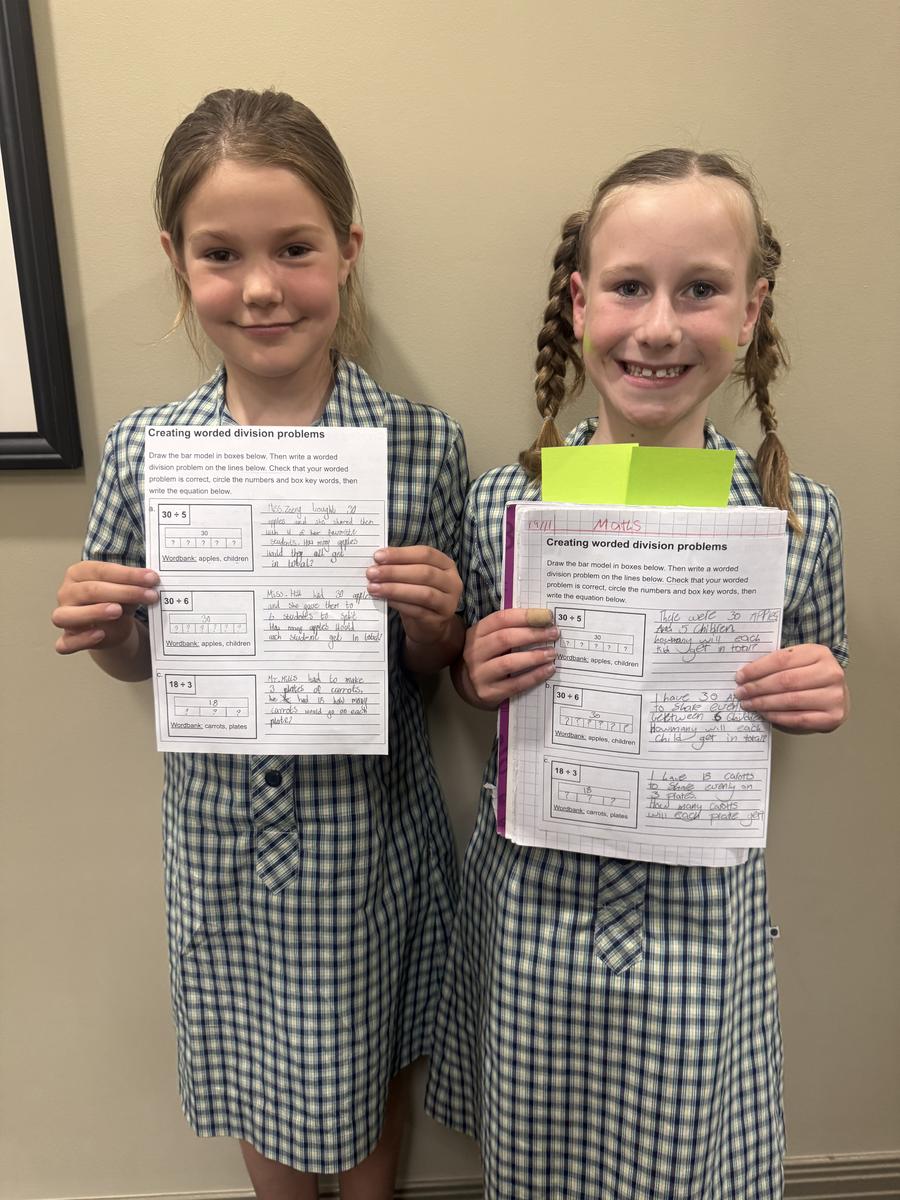 Creating worded division problems
Draw the bar model in boxes below. Then write a
worded division problem on the lines below. Check that your worded
problem is correct, circle the numbers and box key words, then
write the equation below.
a.
30 ÷ 5
30
? ? ? ? ?
Wordbank: apples, children
Miss.Zoeng bought 30
apples and she shared them
with 4 of her favorite
students. How many apples
would they all get
in total?
30 ÷ 6
30
? ? ? ? ? ?
Wordbank: apples, children
Miss. Hill had 30 apples
and she gave them to
6 students to
How many apples
each student get in total?
c.
18 ÷ 3
18
? ? ?
Wordbank: carrots, plates
Mr. had to make
3 plates of carrots,
he had 18 how many
carrots would go on each
plate?
Maths
Creating worded division problems
Draw the bar model in boxes below. Then write a
worded division problem on the lines below. Check that your worded
problem is correct, circle the numbers and box key words, then
write the equation below.
30 ÷ 5
30
? ? ? ? ?
Wordbank: apples, children
There were 30 Apples
And 5 children
howmany will each
kid get in total?
b.
30 ÷ 6
30
? ? ? ? ? ?
Wordbank: apples, children
I have 30
to share
between 6 children
Howmany will each
Child get in total?
c.
18 ÷ 3
18
? ? ?
Wordbank: carrots, plates
I have 18
to share evenly on
3 Plates.
How many
will each plate get